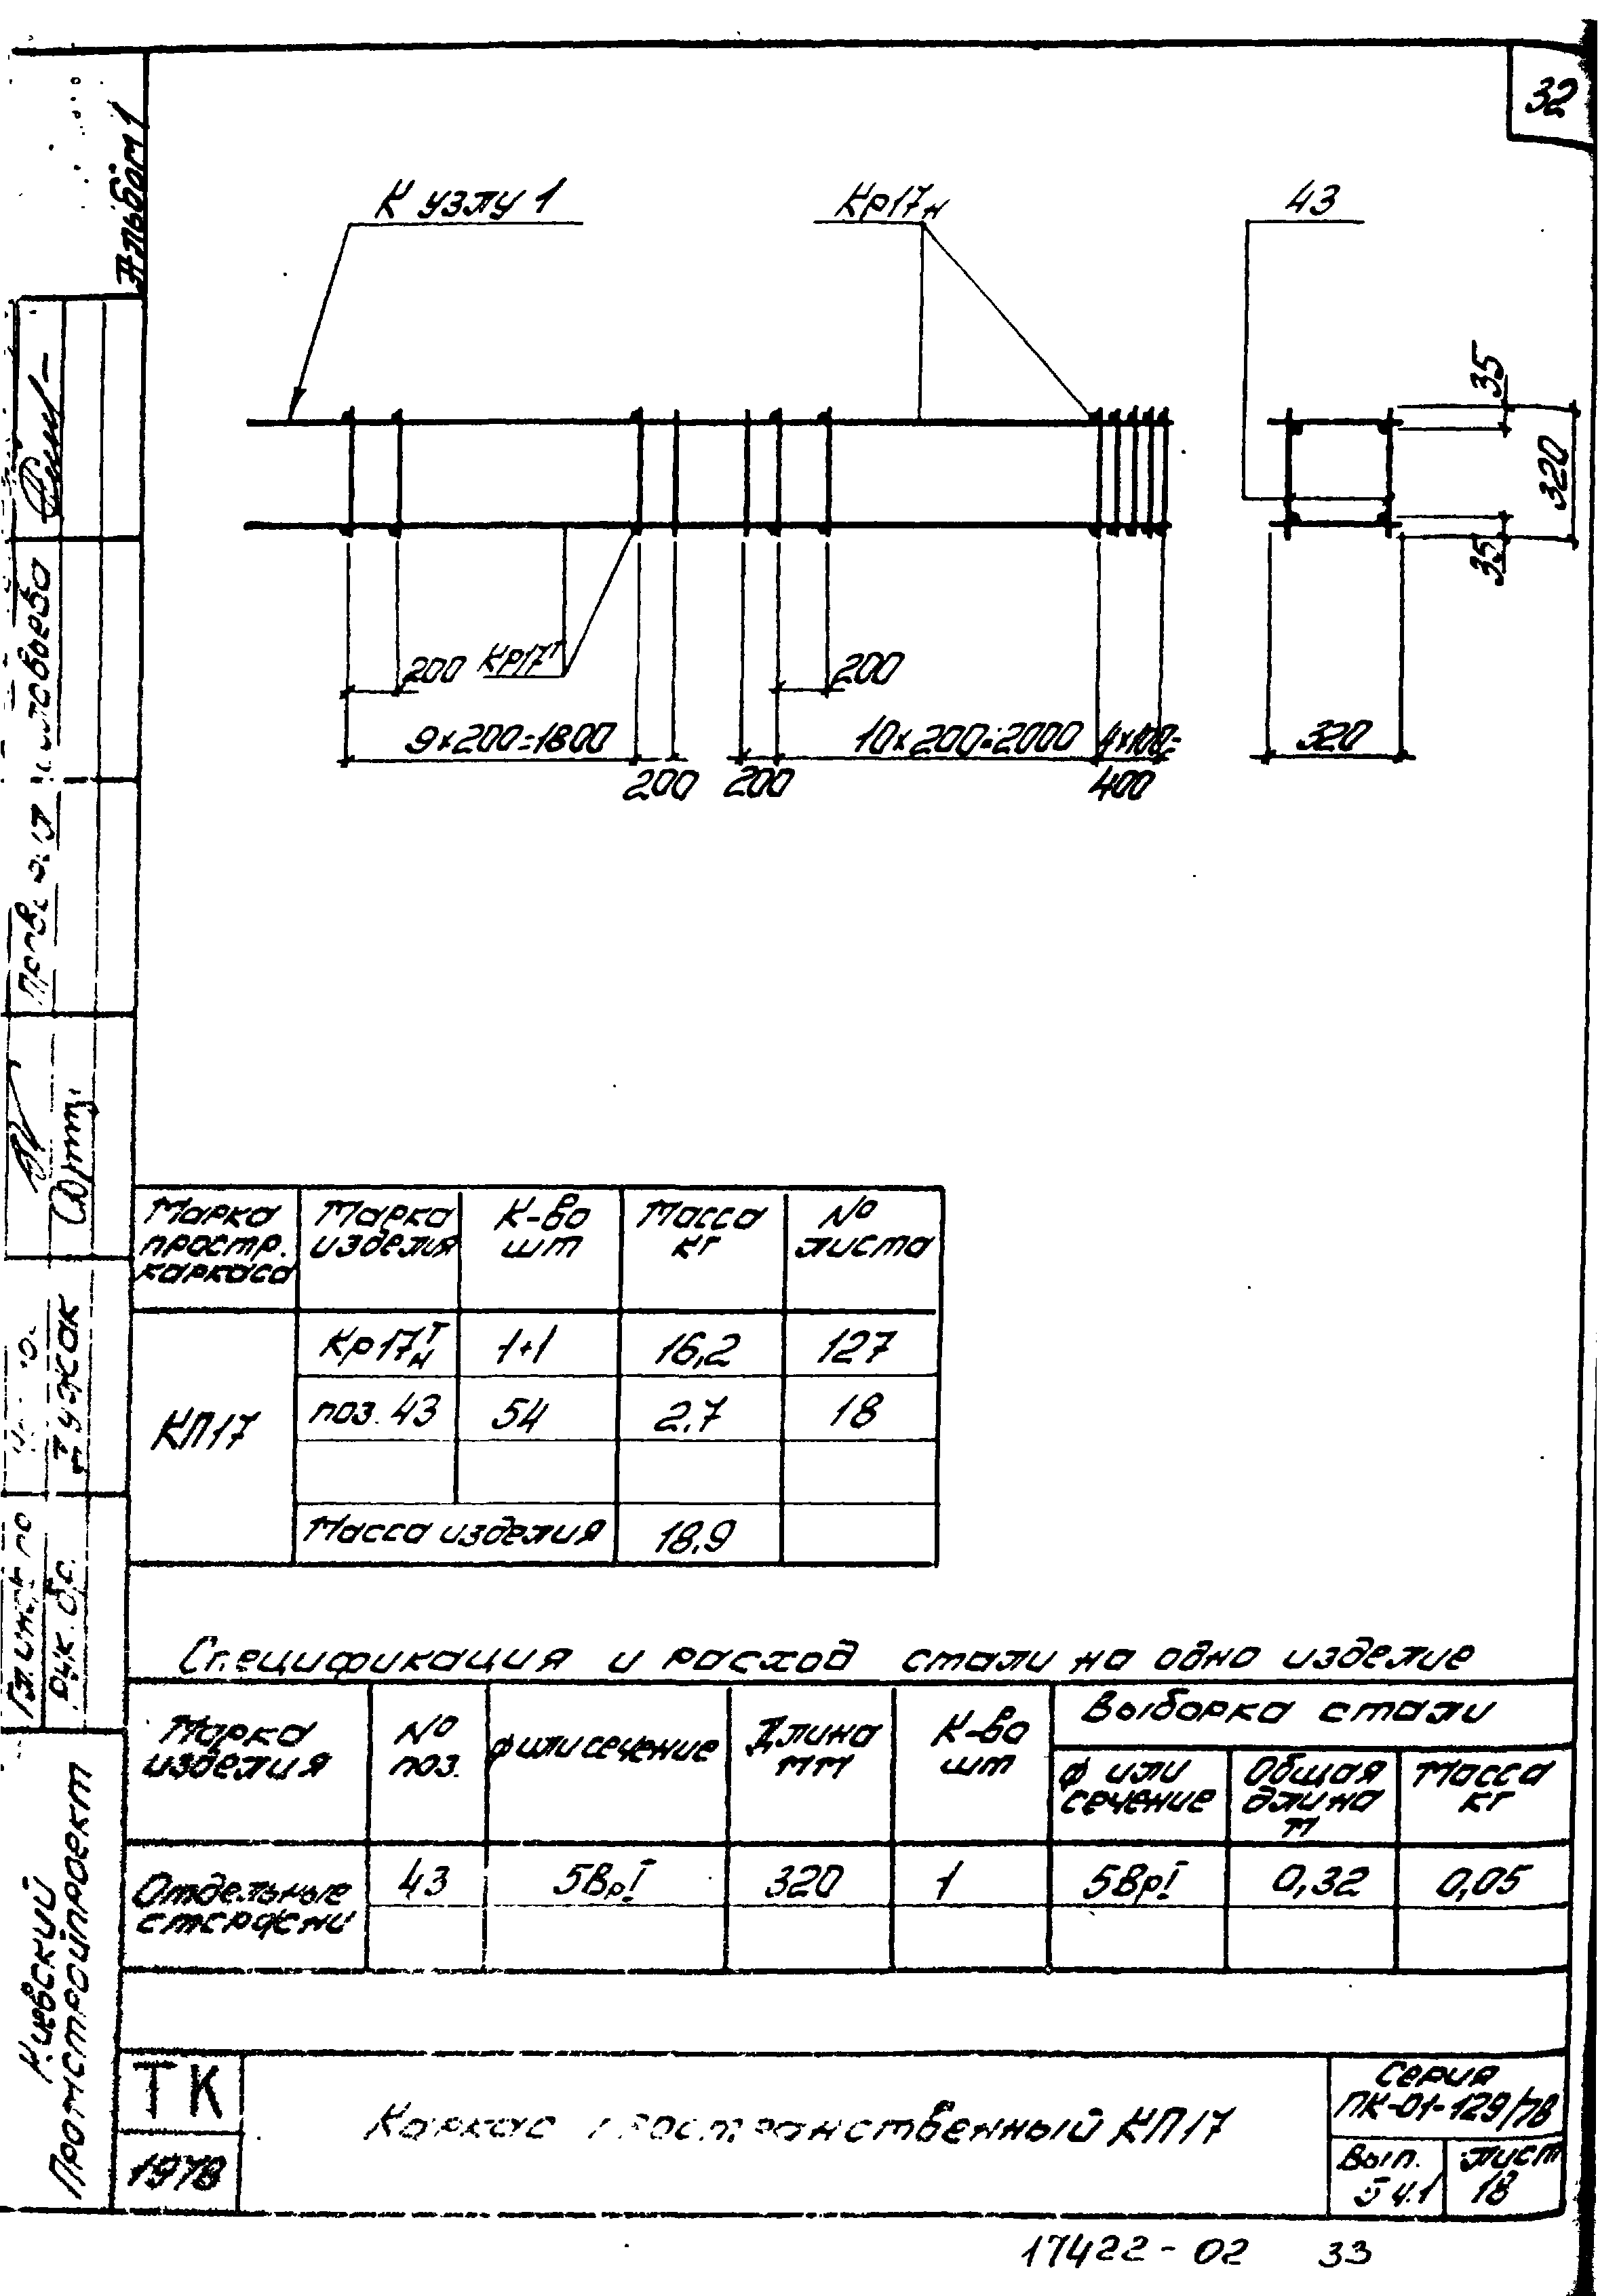 32
Альбом 1
К узлу 1
Кр17н
43
35
320
35
200
Кр17т
200
9×200=1800
10×200=2000
4×100=
400
200
200
320
Марка простр. каркаса
Марка изделия
К-во шт
Масса кг
№ листа
КП17
Кр17т/н
1+1
16,2
127
поз. 43
54
2,7
18
Масса изделия
18,9
Спецификация и расход стали на одно изделие
Марка изделия
№ поз.
ф или сечение
Длина мм
К-во шт
Выборка стали
ф или сечение
Общая длина м
Масса кг
Отдельные стержни
43
5ВрI
320
1
5ВрI
0,32
0,05
Киевский
Промстройпроект
ТК
1978
Каркас пространственный КП17
Серия
ПК-01-129/78
Вып.
5 ч.1
лист
18
17422-02
33